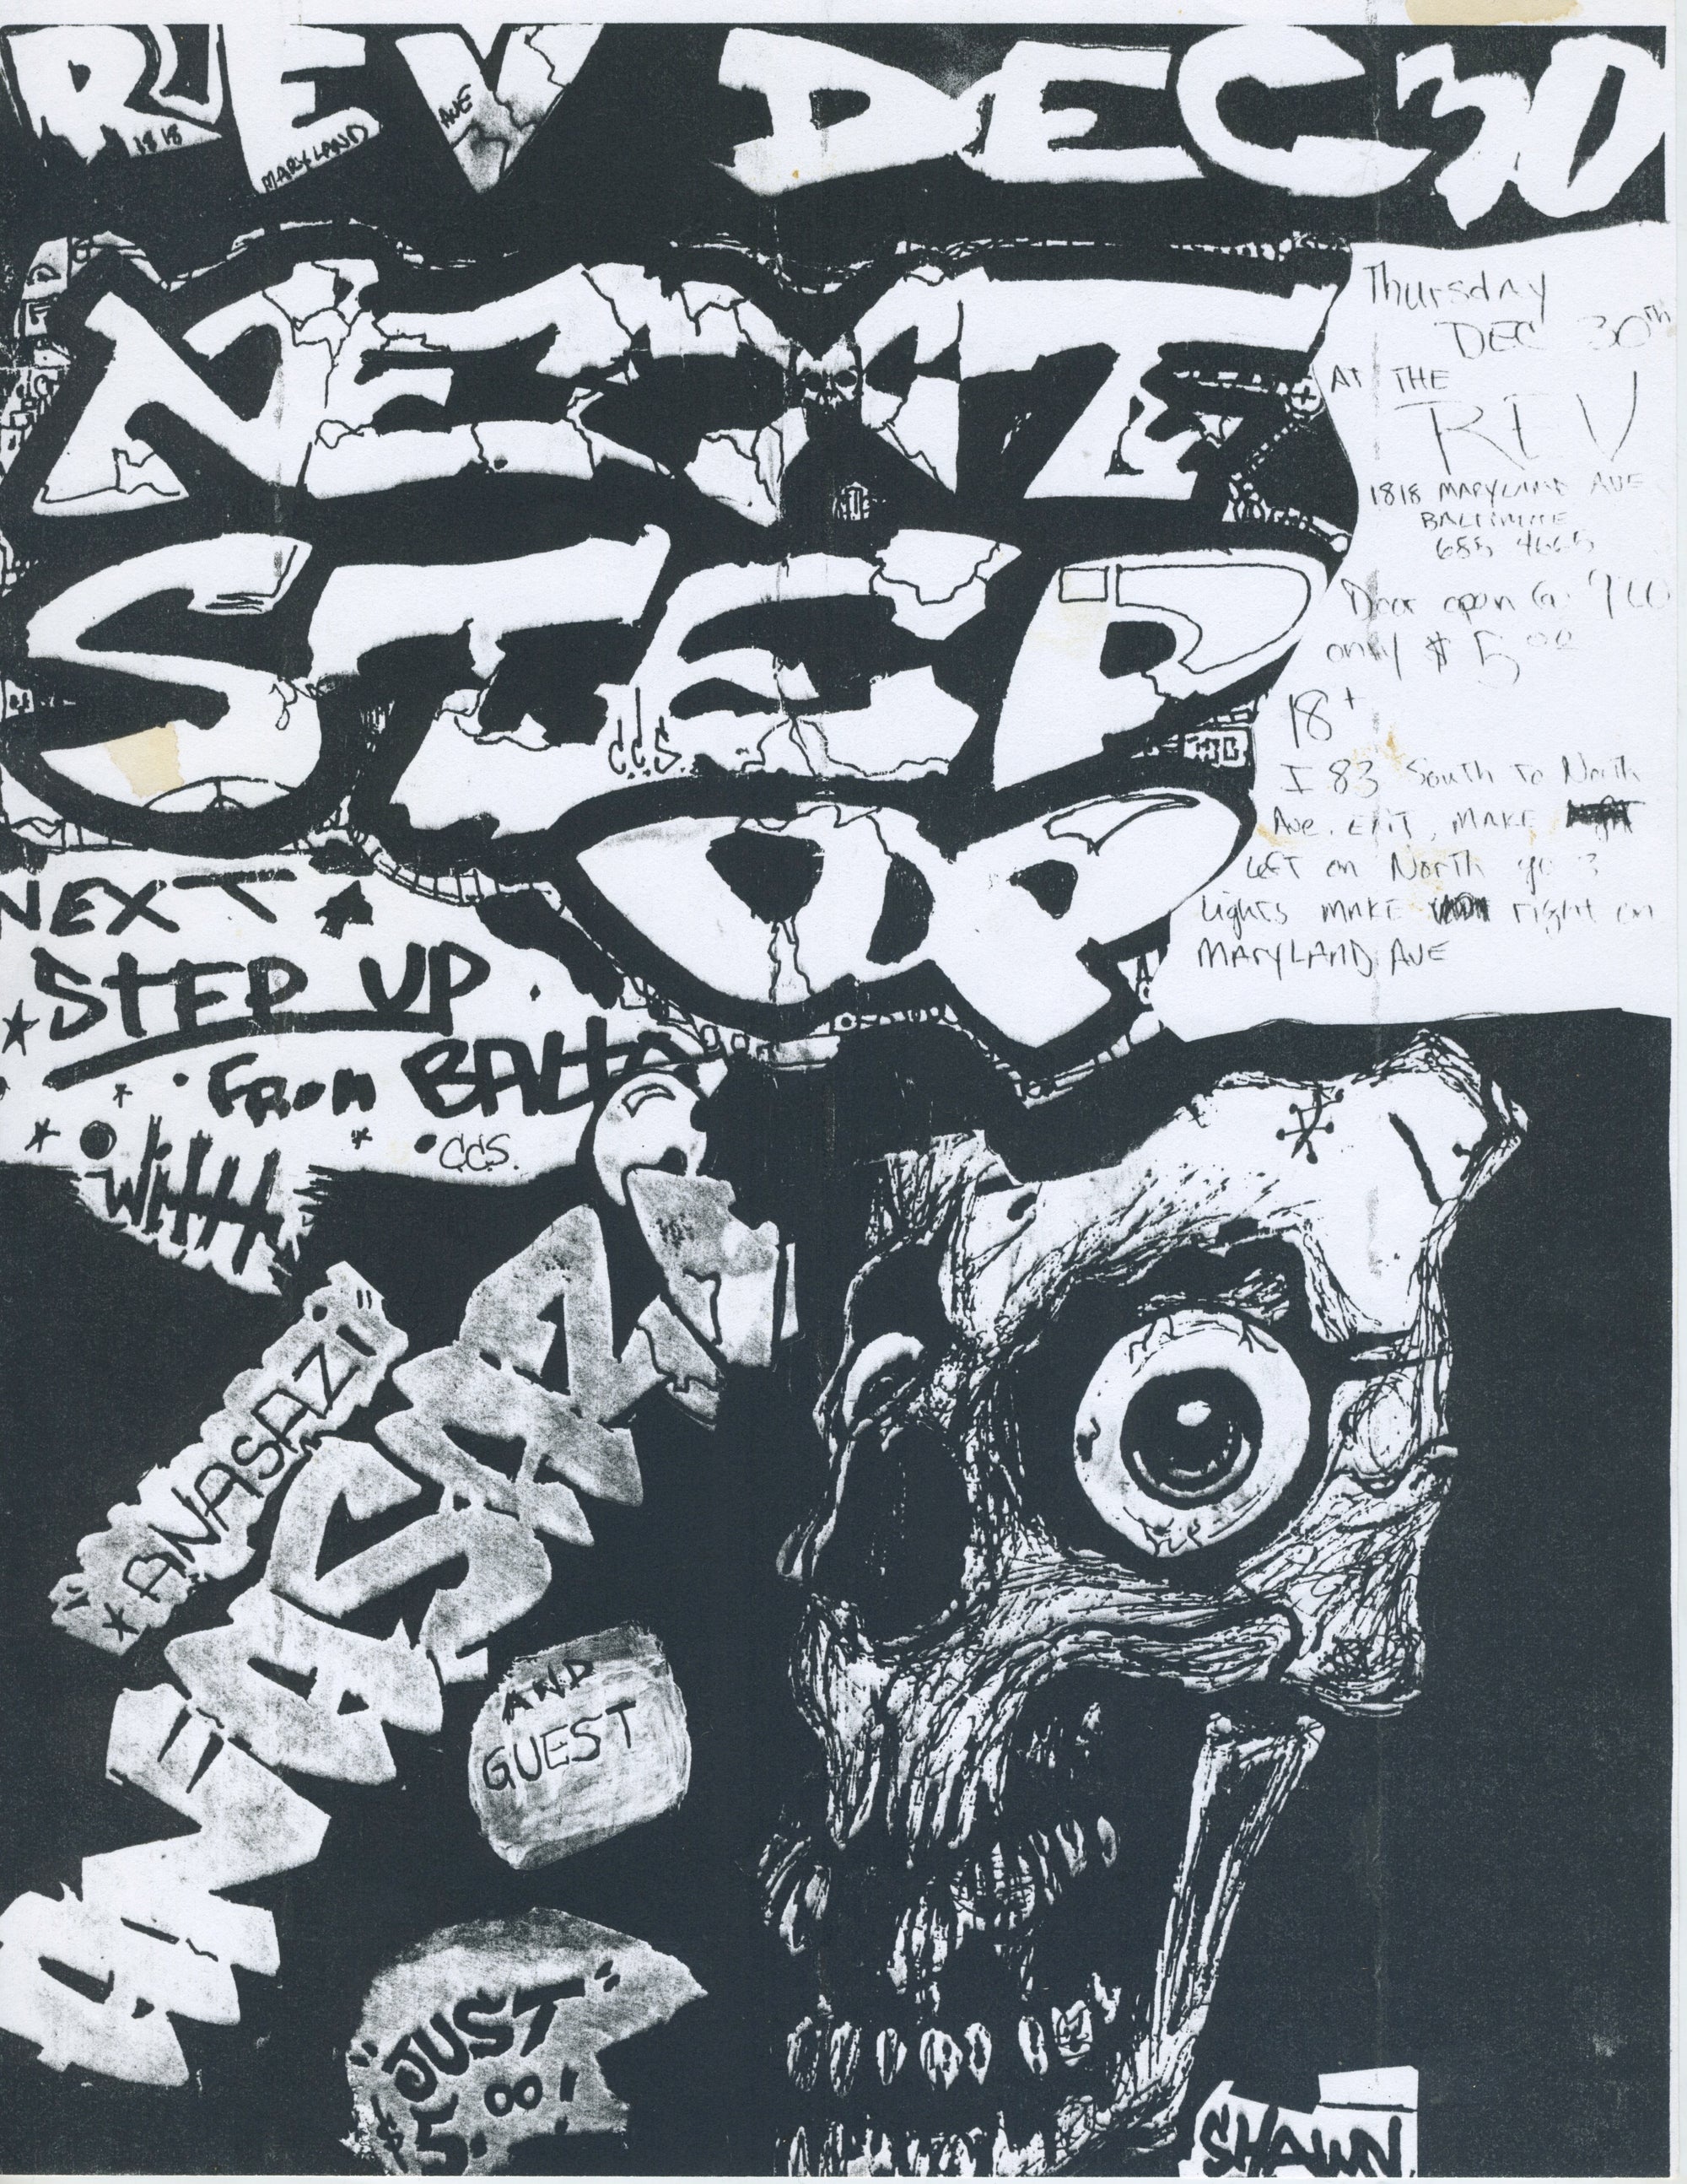 REV DEC 30
1818
MARYLAND
AVE
NEXT
STEP
UP
C.C.S.
Thursday
DEC 30th
At THE
REV
1818 MARYLAND AVE
BALTIMORE
685 4665
Door open @
only $ 5 00
18+
I 83 South to North
Ave. EXIT, MAKE
LEFT on North go 3
Lights MAKE right on
MARYLAND AVE
NEXT
STEP UP
From BALTO
C.C.S.
With
"ANASAZI"
ANASAZI
AND
GUEST
"JUST"
$5.00!
SHAWN